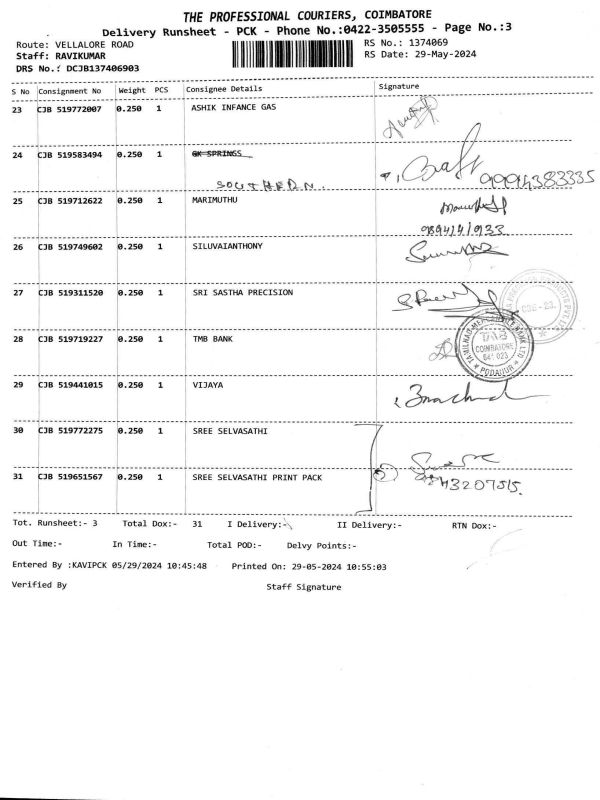 THE PROFESSIONAL COURIERS, COIMBATORE
Delivery Runsheet - PCK - Phone No.:0422-3505555 - Page No.:3
Route: VELLALORE ROAD
RS No.: 1374069
Staff: RAVIKUMAR
RS Date: 29-May-2024
DRS No.: DCJB137406903
S No Consignment No Weight PCS Consignee Details Signature
23 CJB 519772007 0.250 1 ASHIK INFANCE GAS
24 CJB 519583494 0.250 1 GK SPRINGS
SOUTHERN. 9994383335
25 CJB 519712622 0.250 1 MARIMUTHU
26 CJB 519749602 0.250 1 SILUVAIANTHONY
27 CJB 519311520 0.250 1 SRI SASTHA PRECISION
28 CJB 519719227 0.250 1 TMB BANK
TAMILNAD MERCANTILE BANK LTD
TMB
COIMBATORE
641 023
* PODANUR *
29 CJB 519441015 0.250 1 VIJAYA
30 CJB 519772275 0.250 1 SREE SELVASATHI
31 CJB 519651567 0.250 1 SREE SELVASATHI PRINT PACK
Tot. Runsheet:- 3 Total Dox:- 31 I Delivery:- II Delivery:- RTN Dox:-
Out Time:- In Time:- Total POD:- Delvy Points:-
Entered By :KAVIPCK 05/29/2024 10:45:48 Printed On: 29-05-2024 10:55:03
Verified By Staff Signature